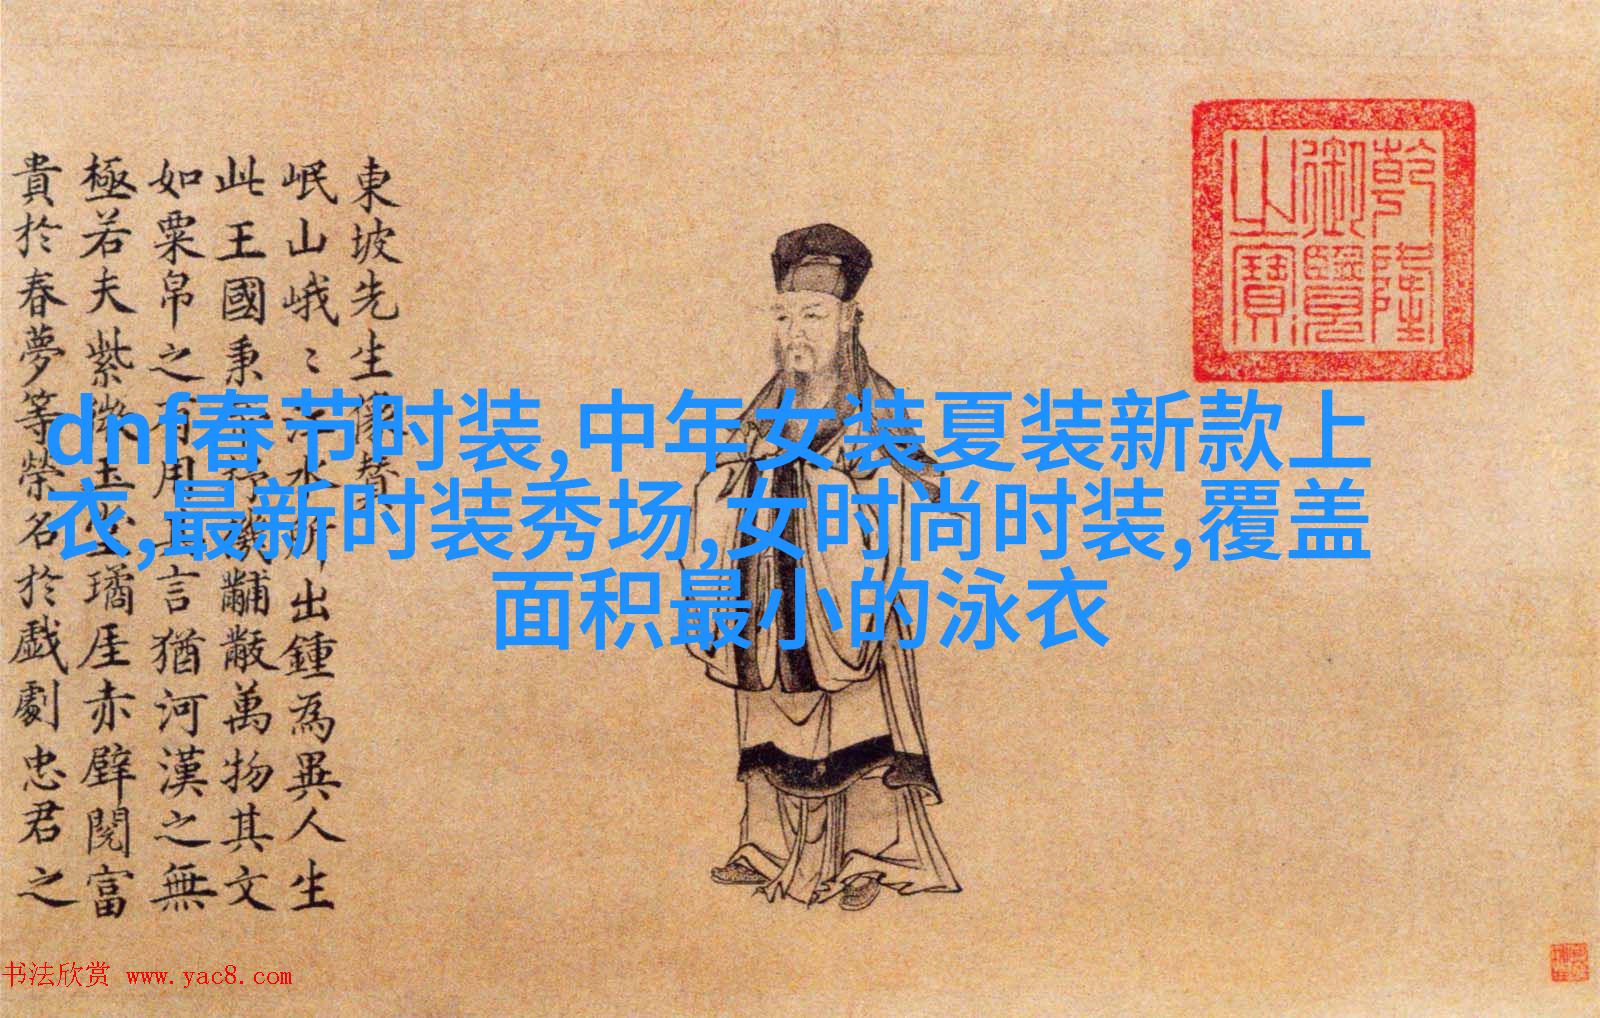 東坡先生像
岷山峨〻江水所出鍾為異人生
此王國秉機黼黻萬物其文
如粟帛之有用其言猶河漢之無
極若夫紫微玉堂璚厓赤壁閱富
貴於春夢等榮名於戲劇忠君之
乾隆
御覽
之寶
dnf春节时装,中年女装夏装新款上
衣,最新时装秀场,女时尚时装,覆盖
面积最小的泳衣
书法欣赏 www.yac8.com